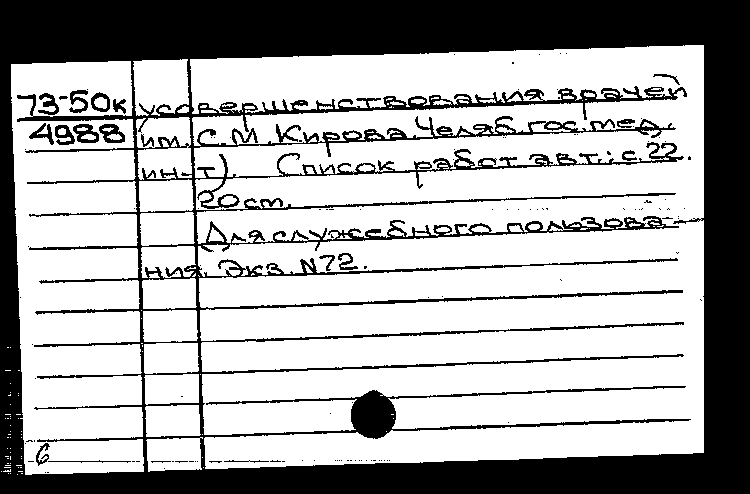 73-50к усовершенствования врачей
4988 им. С.М. Кирова. Челяб. гос. мед.
ин-т). Список работ авт.: с. 22.
20 ст.
Для служебного пользова-
ния. Экз. N72.
6